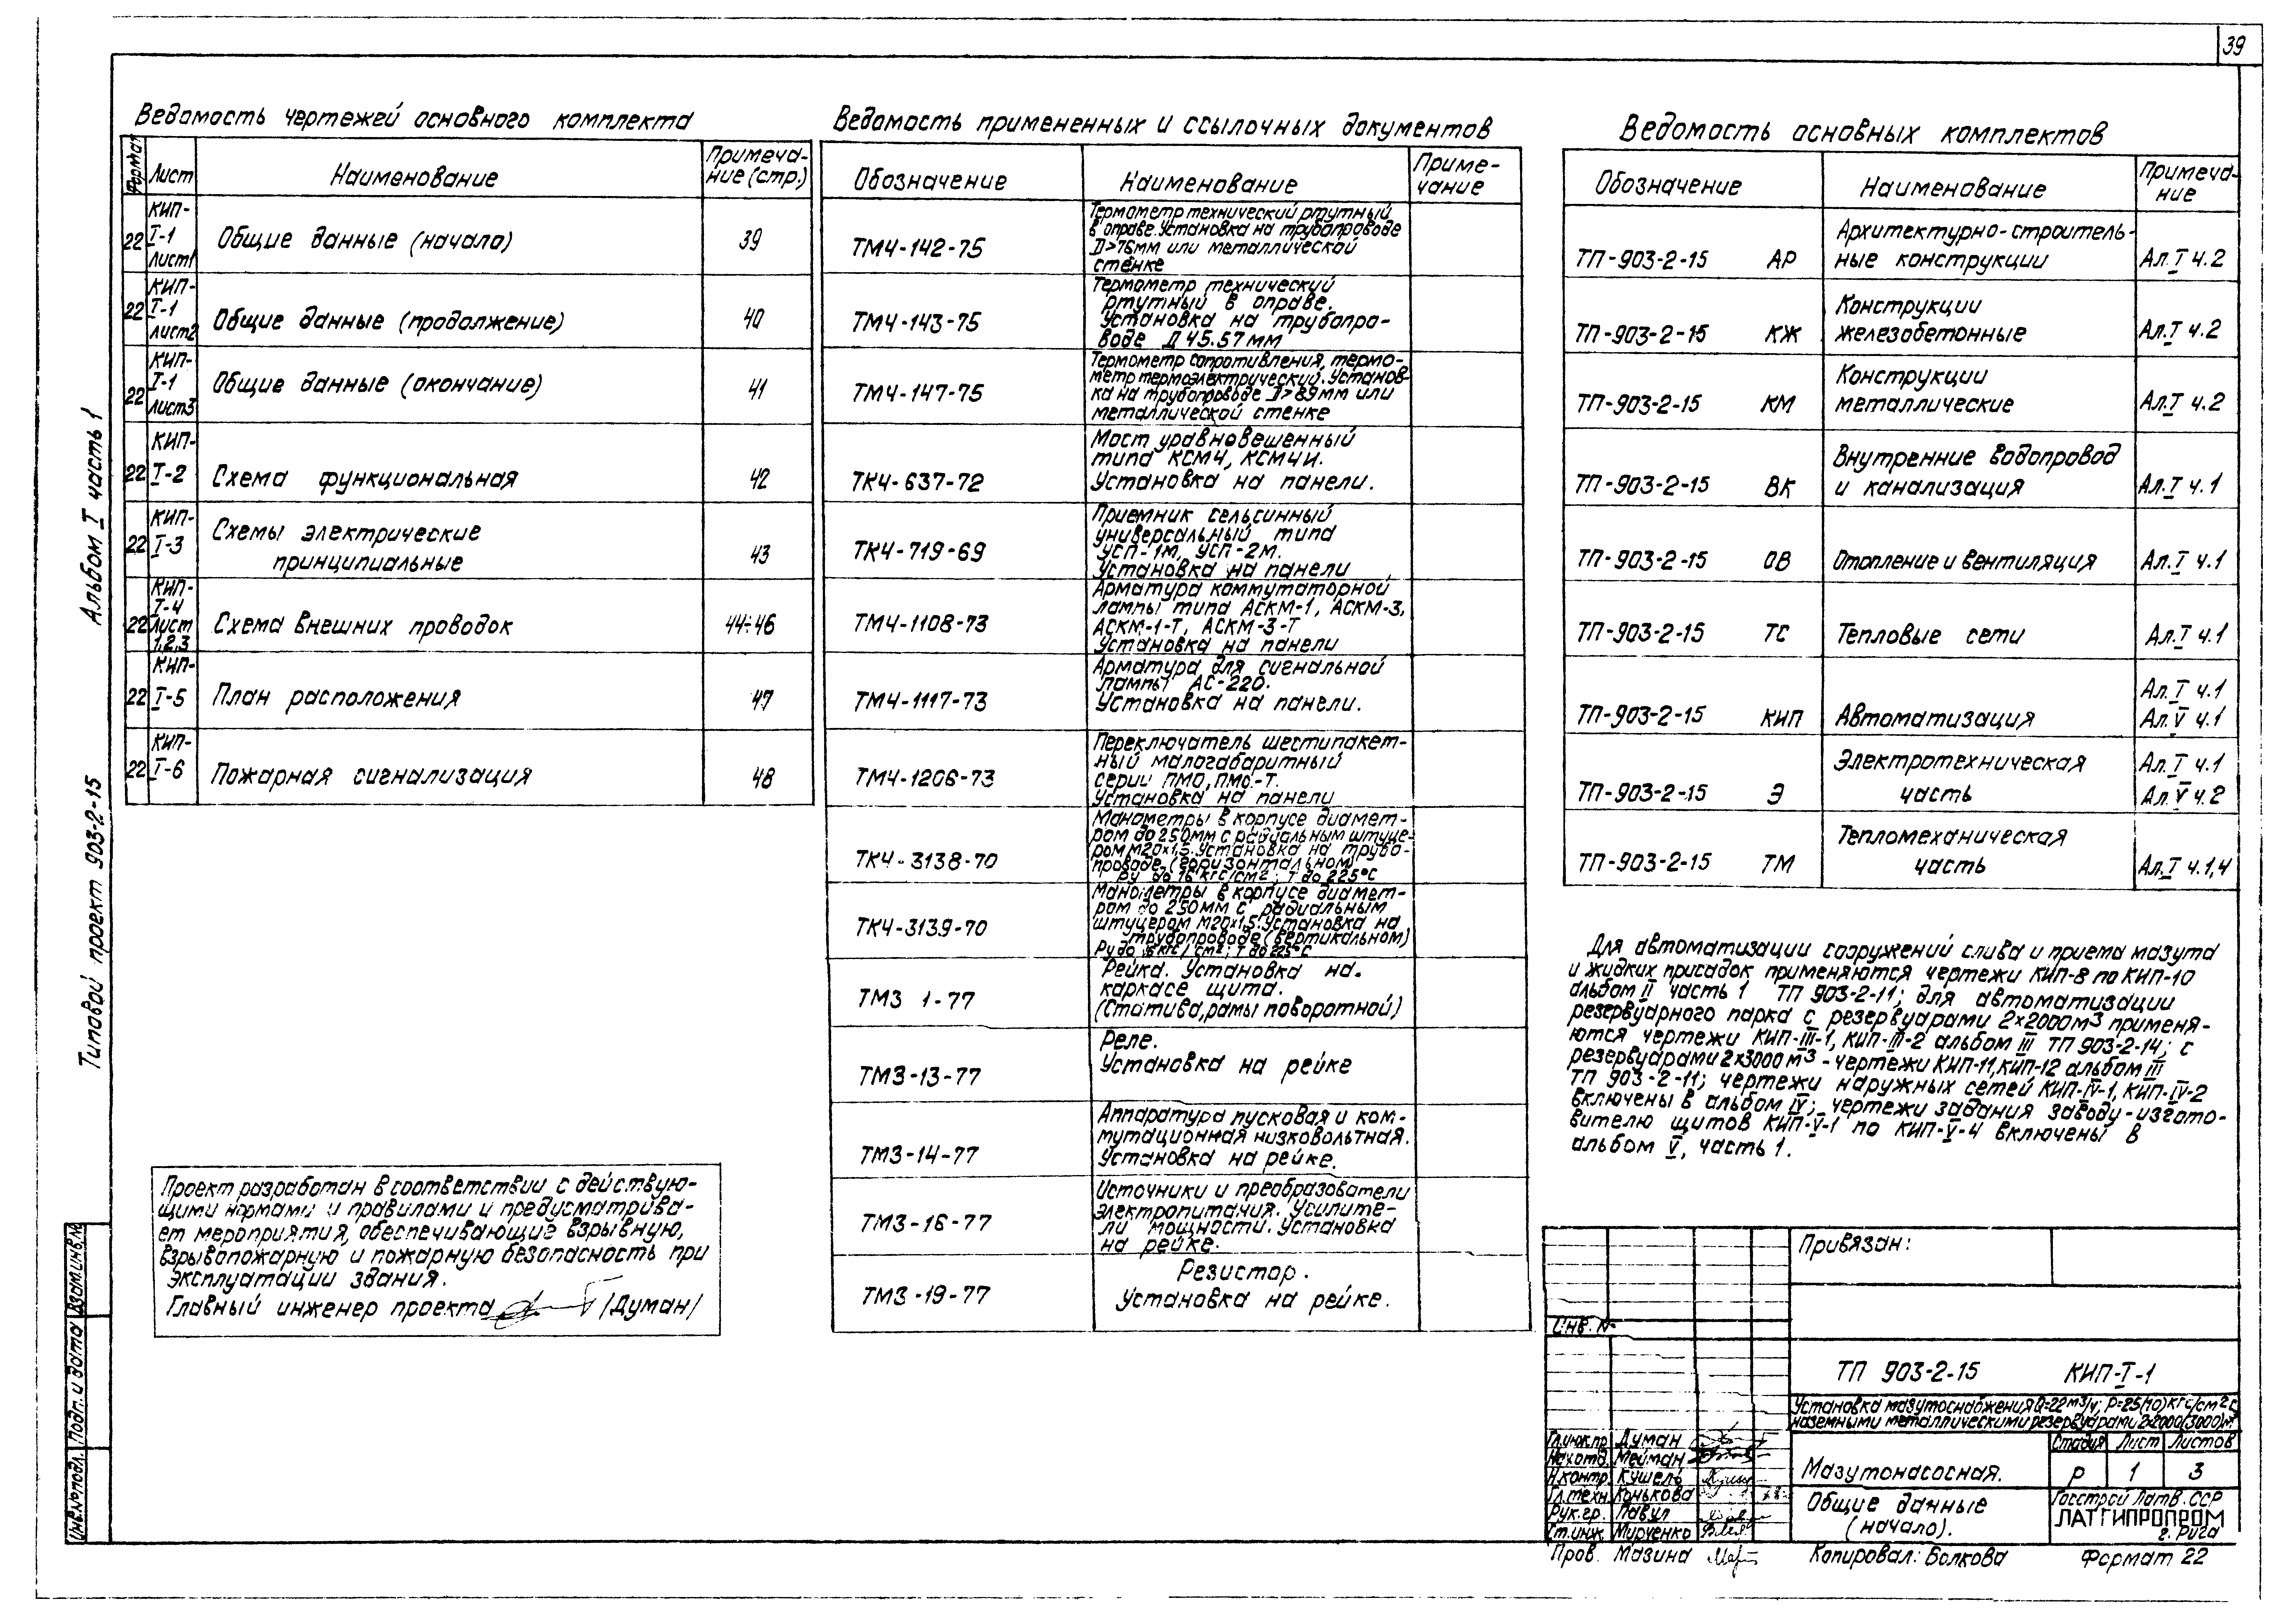 39
Ведомость чертежей основного комплекта
Формат
Лист
Наименование
Примеча-
ние (стр.)
22
КИП-
I-1
Лист1
Общие данные (начало)
39
22
КИП-
I-1
лист2
Общие данные (продолжение)
40
22
КИП-
I-1
Лист3
Общие данные (окончание)
41
22
КИП-
I-2
Схема функциональная
42
22
КИП-
I-3
Схемы электрические
принципиальные
43
22
КИП-
I-4
Лист
1,2,3
Схема внешних проводок
44÷46
22
КИП-
I-5
План расположения
47
22
КИП-
I-6
Пожарная сигнализация
48
Ведомость примененных и ссылочных документов
Обозначение
Наименование
Приме-
чание
ТМ4-142-75
Термометр технический ртутный
в оправе. Установка на трубопроводе
D>76мм или металлической
стенке
ТМ4-143-75
Термометр технический
ртутный в оправе.
Установка на трубопро-
воде Д 45.57 мм
ТМ4-147-75
Термометр сопротивления, термо-
метр термоэлектрический. Установ-
ка на трубопроводе D>89мм или
металлической стенке
ТК4-637-72
Мост уравновешенный
типа КСМ4, КСМ4И.
Установка на панели.
ТК4-719-69
Приемник сельсинный
универсальный типа
УСП-1М, УСП-2М.
Установка на панели
ТМ4-1108-73
Арматура коммутаторной
лампы типа АСКМ-1, АСКМ-3,
АСКМ-1-Т, АСКМ-3-Т
Установка на панели
ТМ4-1117-73
Арматура для сигнальной
лампы АС-220.
Установка на панели.
ТМ4-1206-73
Переключатель шестипакет-
ный малогабаритный
серии ПМО, ПМО-Т.
Установка на панели
ТК4-3138-70
Манометры в корпусе диамет-
ром до 250мм с радиальным штуце-
ром М20х1,5. Установка на трубо-
проводе (горизонтальном)
Ру до 16 кгс/см²; Т до 225°С
ТК4-3139-70
Манометры в корпусе диамет-
ром до 250мм с радиальным
штуцером М20х1,5. Установка на
трубопроводе (вертикальном)
Ру до 16 кгс/см²; Т до 225°С
ТМ3 1-77
Рейка. Установка на
каркасе щита.
(Статива, рамы поворотной)
ТМ3-13-77
Реле.
Установка на рейке
ТМ3-14-77
Аппаратура пусковая и ком-
мутационная низковольтная.
Установка на рейке.
ТМ3-16-77
Источники и преобразователи
электропитания. Усилите-
ли мощности. Установка
на рейке.
ТМ3-19-77
Резистор.
Установка на рейке.
Ведомость основных комплектов
Обозначение
Наименование
Примеча-
ние
ТП-903-2-15 АР
Архитектурно-строитель-
ные конструкции
Ал.I ч.2
ТП-903-2-15 КЖ
Конструкции
железобетонные
Ал.I ч.2
ТП-903-2-15 КМ
Конструкции
металлические
Ал.I ч.2
ТП-903-2-15 ВК
Внутренние водопровод
и канализация
Ал.I ч.1
ТП-903-2-15 ОВ
Отопление и вентиляция
Ал.I ч.1
ТП-903-2-15 ТС
Тепловые сети
Ал.I ч.1
ТП-903-2-15 КИП
Автоматизация
Ал.I ч.1
Ал.V ч.1
ТП-903-2-15 Э
Электротехническая
часть
Ал.I ч.1
Ал.V ч.2
ТП-903-2-15 ТМ
Тепломеханическая
часть
Ал.I ч.1,4
Для автоматизации сооружений слива и приема мазута
и жидких присадок применяются чертежи КИП-8 по КИП-10
альбом II часть 1 ТП 903-2-11; для автоматизации
резервуарного парка с резервуарами 2х2000м3 применя-
ются чертежи КИП-III-1, КИП-III-2 альбом III ТП 903-2-14; с
резервуарами 2х3000 м3 - чертежи КИП-11, КИП-12 альбом III
ТП 903-2-11; чертежи наружных сетей КИП-IV-1, КИП-IV-2
включены в альбом IV; чертежи задания заводу-изгото-
вителю щитов КИП-V-1 по КИП-V-4 включены в
альбом V, часть 1.
Проект разработан в соответствии с действую-
щими нормами и правилами и предусматрива-
ет мероприятия, обеспечивающие взрывную,
взрывопожарную и пожарную безопасность при
эксплуатации здания.
Главный инженер проекта /Думан/
Альбом I часть 1
Типовой проект 903-2-15
Взам.инв.№
Подп. и дата
Инв.№подл.
Привязан:
Инв. №
ТП 903-2-15 КИП-I-1
Установка мазутоснабжения Q=22м3/ч; Р=25(10)кгс/см2 с
наземными металлическими резервуарами 2х2000(3000)м3
Гл.инж.пр. Думан
Нач.отд. Мейман
Н.контр. Кушель
Гл.техн. Конькова
Рук.гр. Павул
Ст.инж. Мурченко
Пров. Мазина
Мазутонасосная.
Стадия Лист Листов
Р 1 3
Общие данные
(начало).
Госстрой Латв. ССР
ЛАТГИПРОПРОМ
г. Рига
Копировал: Волкова
Формат 22